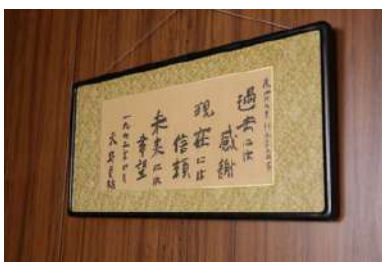 過去には
感謝
現在には
信頼
未来には
希望